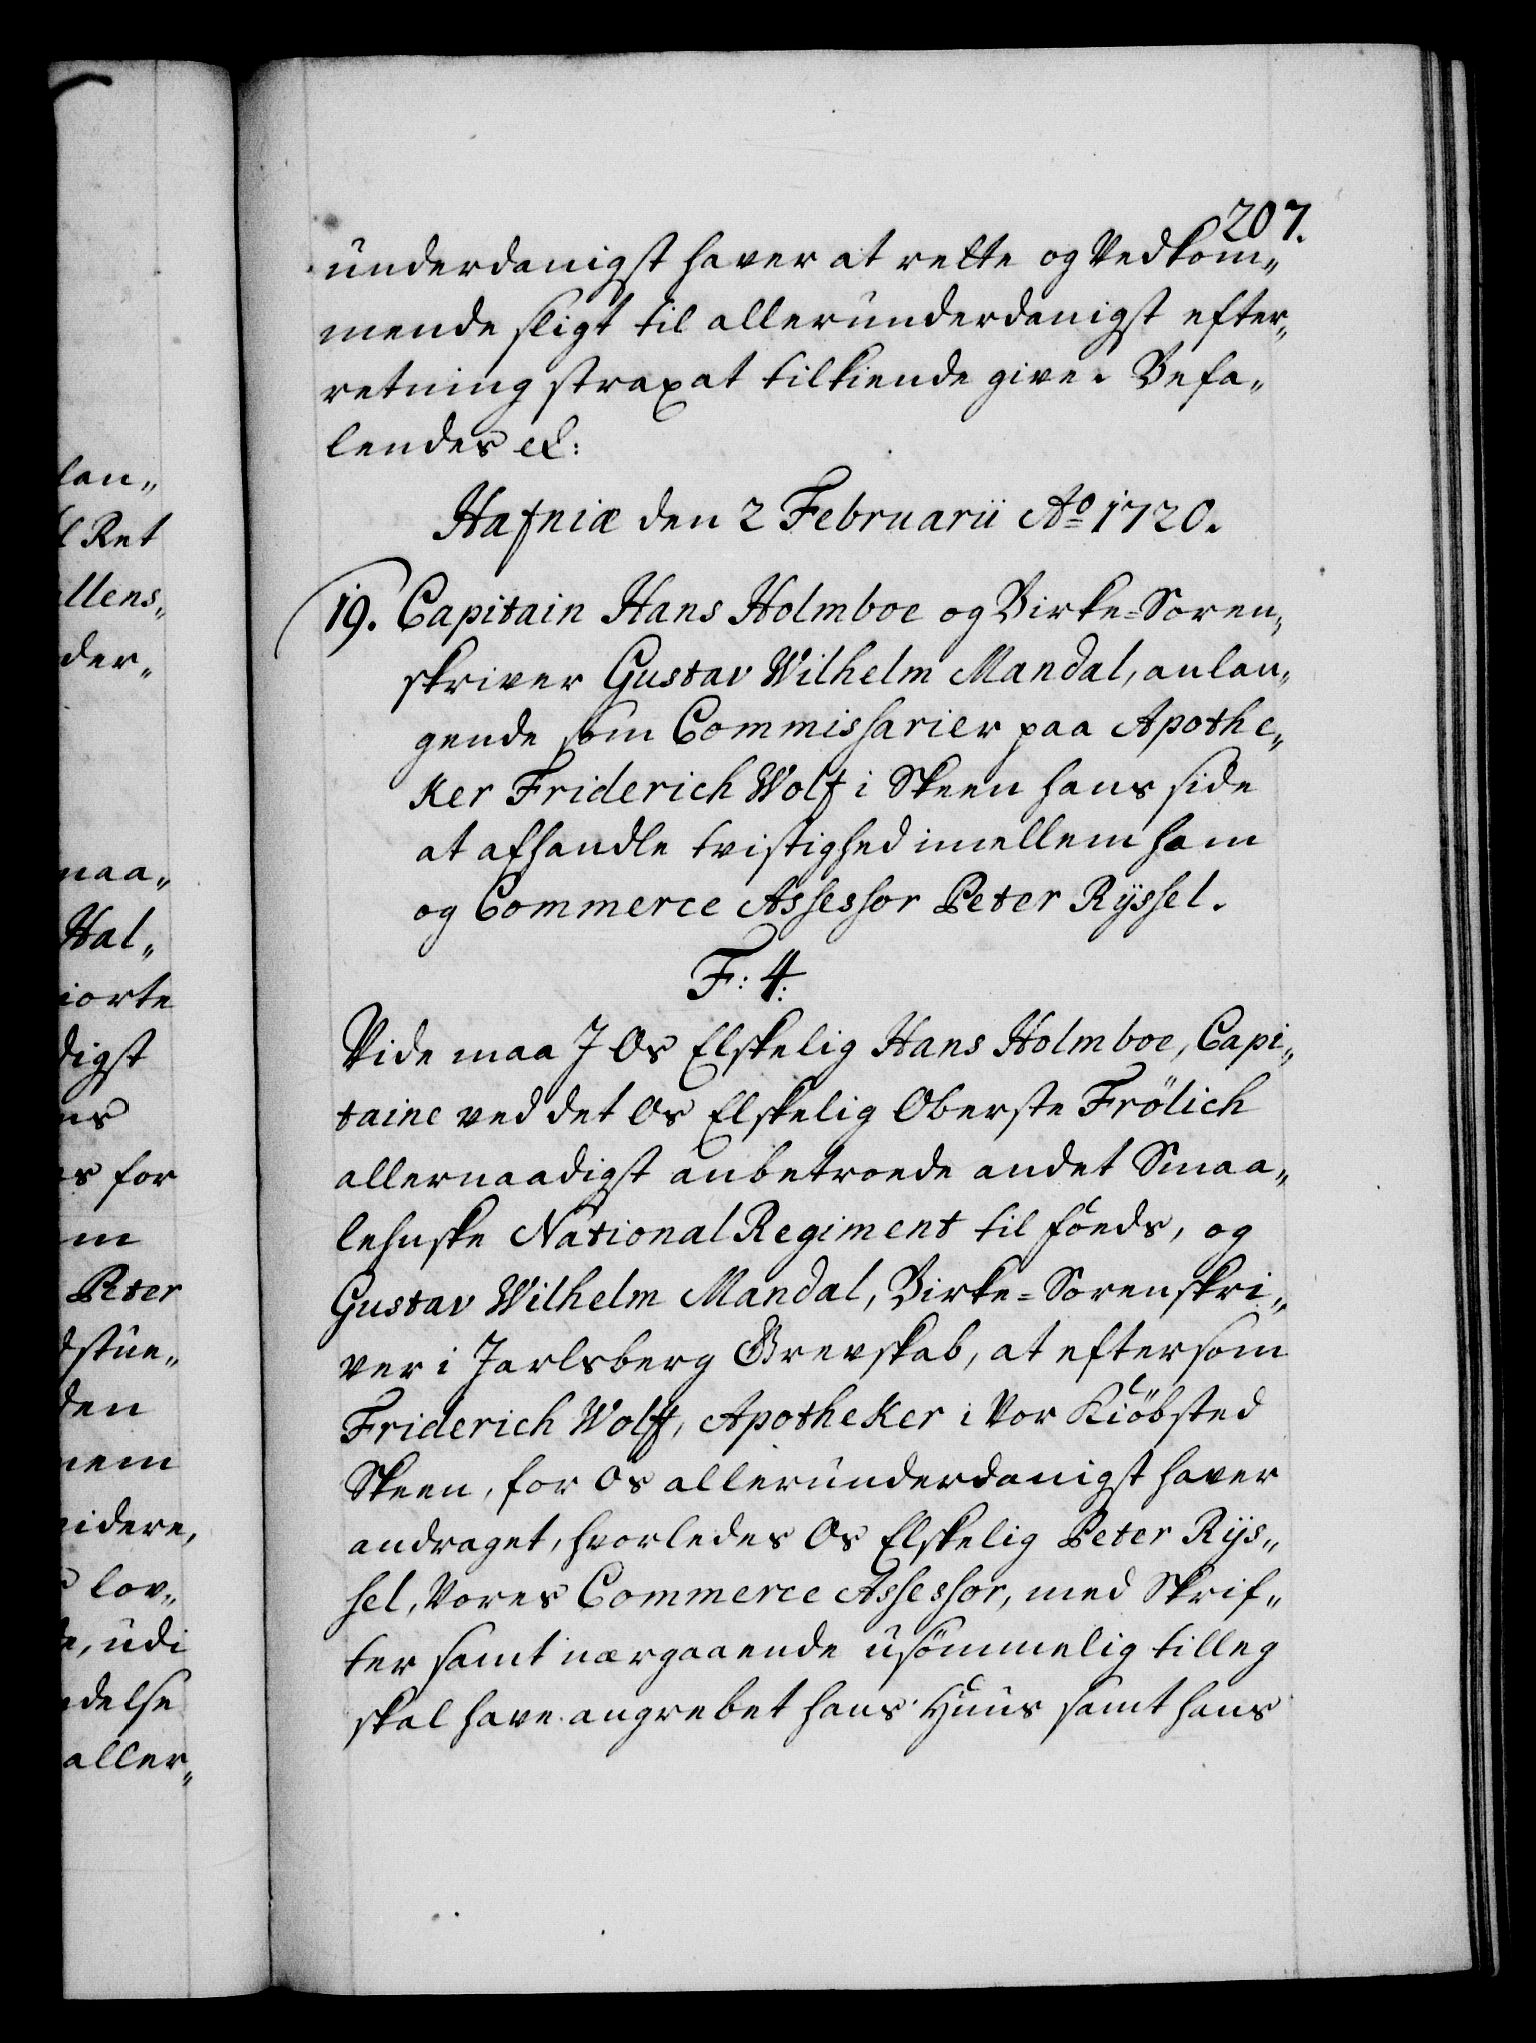 207.
underdanigst haver at rette og Vedkom„
mende sligt til allerunderdanigst efter„
retning strax at tilkiende give. Befa„
lendes etc:
Hafniæ den 2 Februarii Ao 1720.
19. Capitain Hans Holmboe og Birke-Soren„
skriver Gustav Wilhelm Mandal, anlan„
gende som Commissarier paa Apothe„
ker Friderich Wolf i Skeen hans side
at afhandle tvistighed imellem ham
og Commerce Assessor Peter Ryssel.
F: 4:
Vide maa J Os Elskelig Hans Holmboe, Capi„
taine ved det Os Elskelig Oberste Frölich
allernaadigst anbetroede andet Smaa„
lehnske National Regiment til foeds, og
Gustav Wilhelm Mandal, Birke-Sorenskri„
ver i Jarlsberg Grevskab, at eftersom
Friderich Wolff, Apotheker i Vor Kiöbsted
Skeen, for Os allerunderdanigst haver
andraget, hvorledes Os Elskelig Peter Rys„
sel, Vores Commerce Assessor, med Skrif„
ter samt nærgaaende usömmelig tilleg
skal have angrebet hans Huus samt hans
lan„
Ret
llens„
der„
maa„
Hal„
iorte
digst
ns
for
m
Peter
dstue„
den
nem
videre,
lov„
udi
delse
aller„